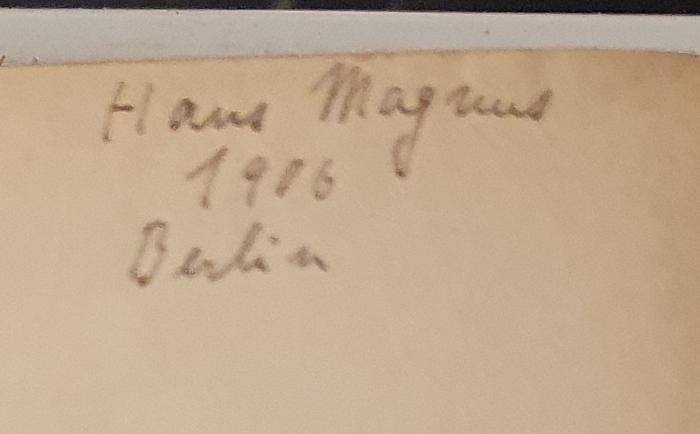 Hans Magnus
1986
Berlin